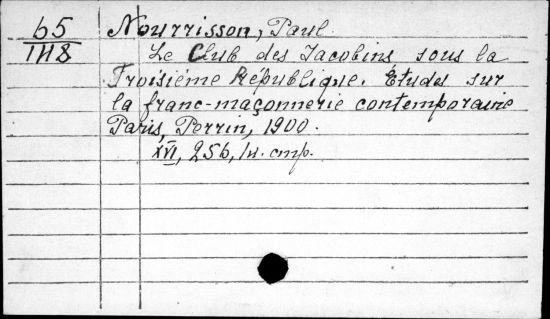 65
1148
Nourrisson, Paul.
Le Club des Jacobins sous la
Troisiéme République. Études sur
la franc-maçonnerie contemporaine
Paris, Perrin, 1900.
XVI, 256, 1н. стр.